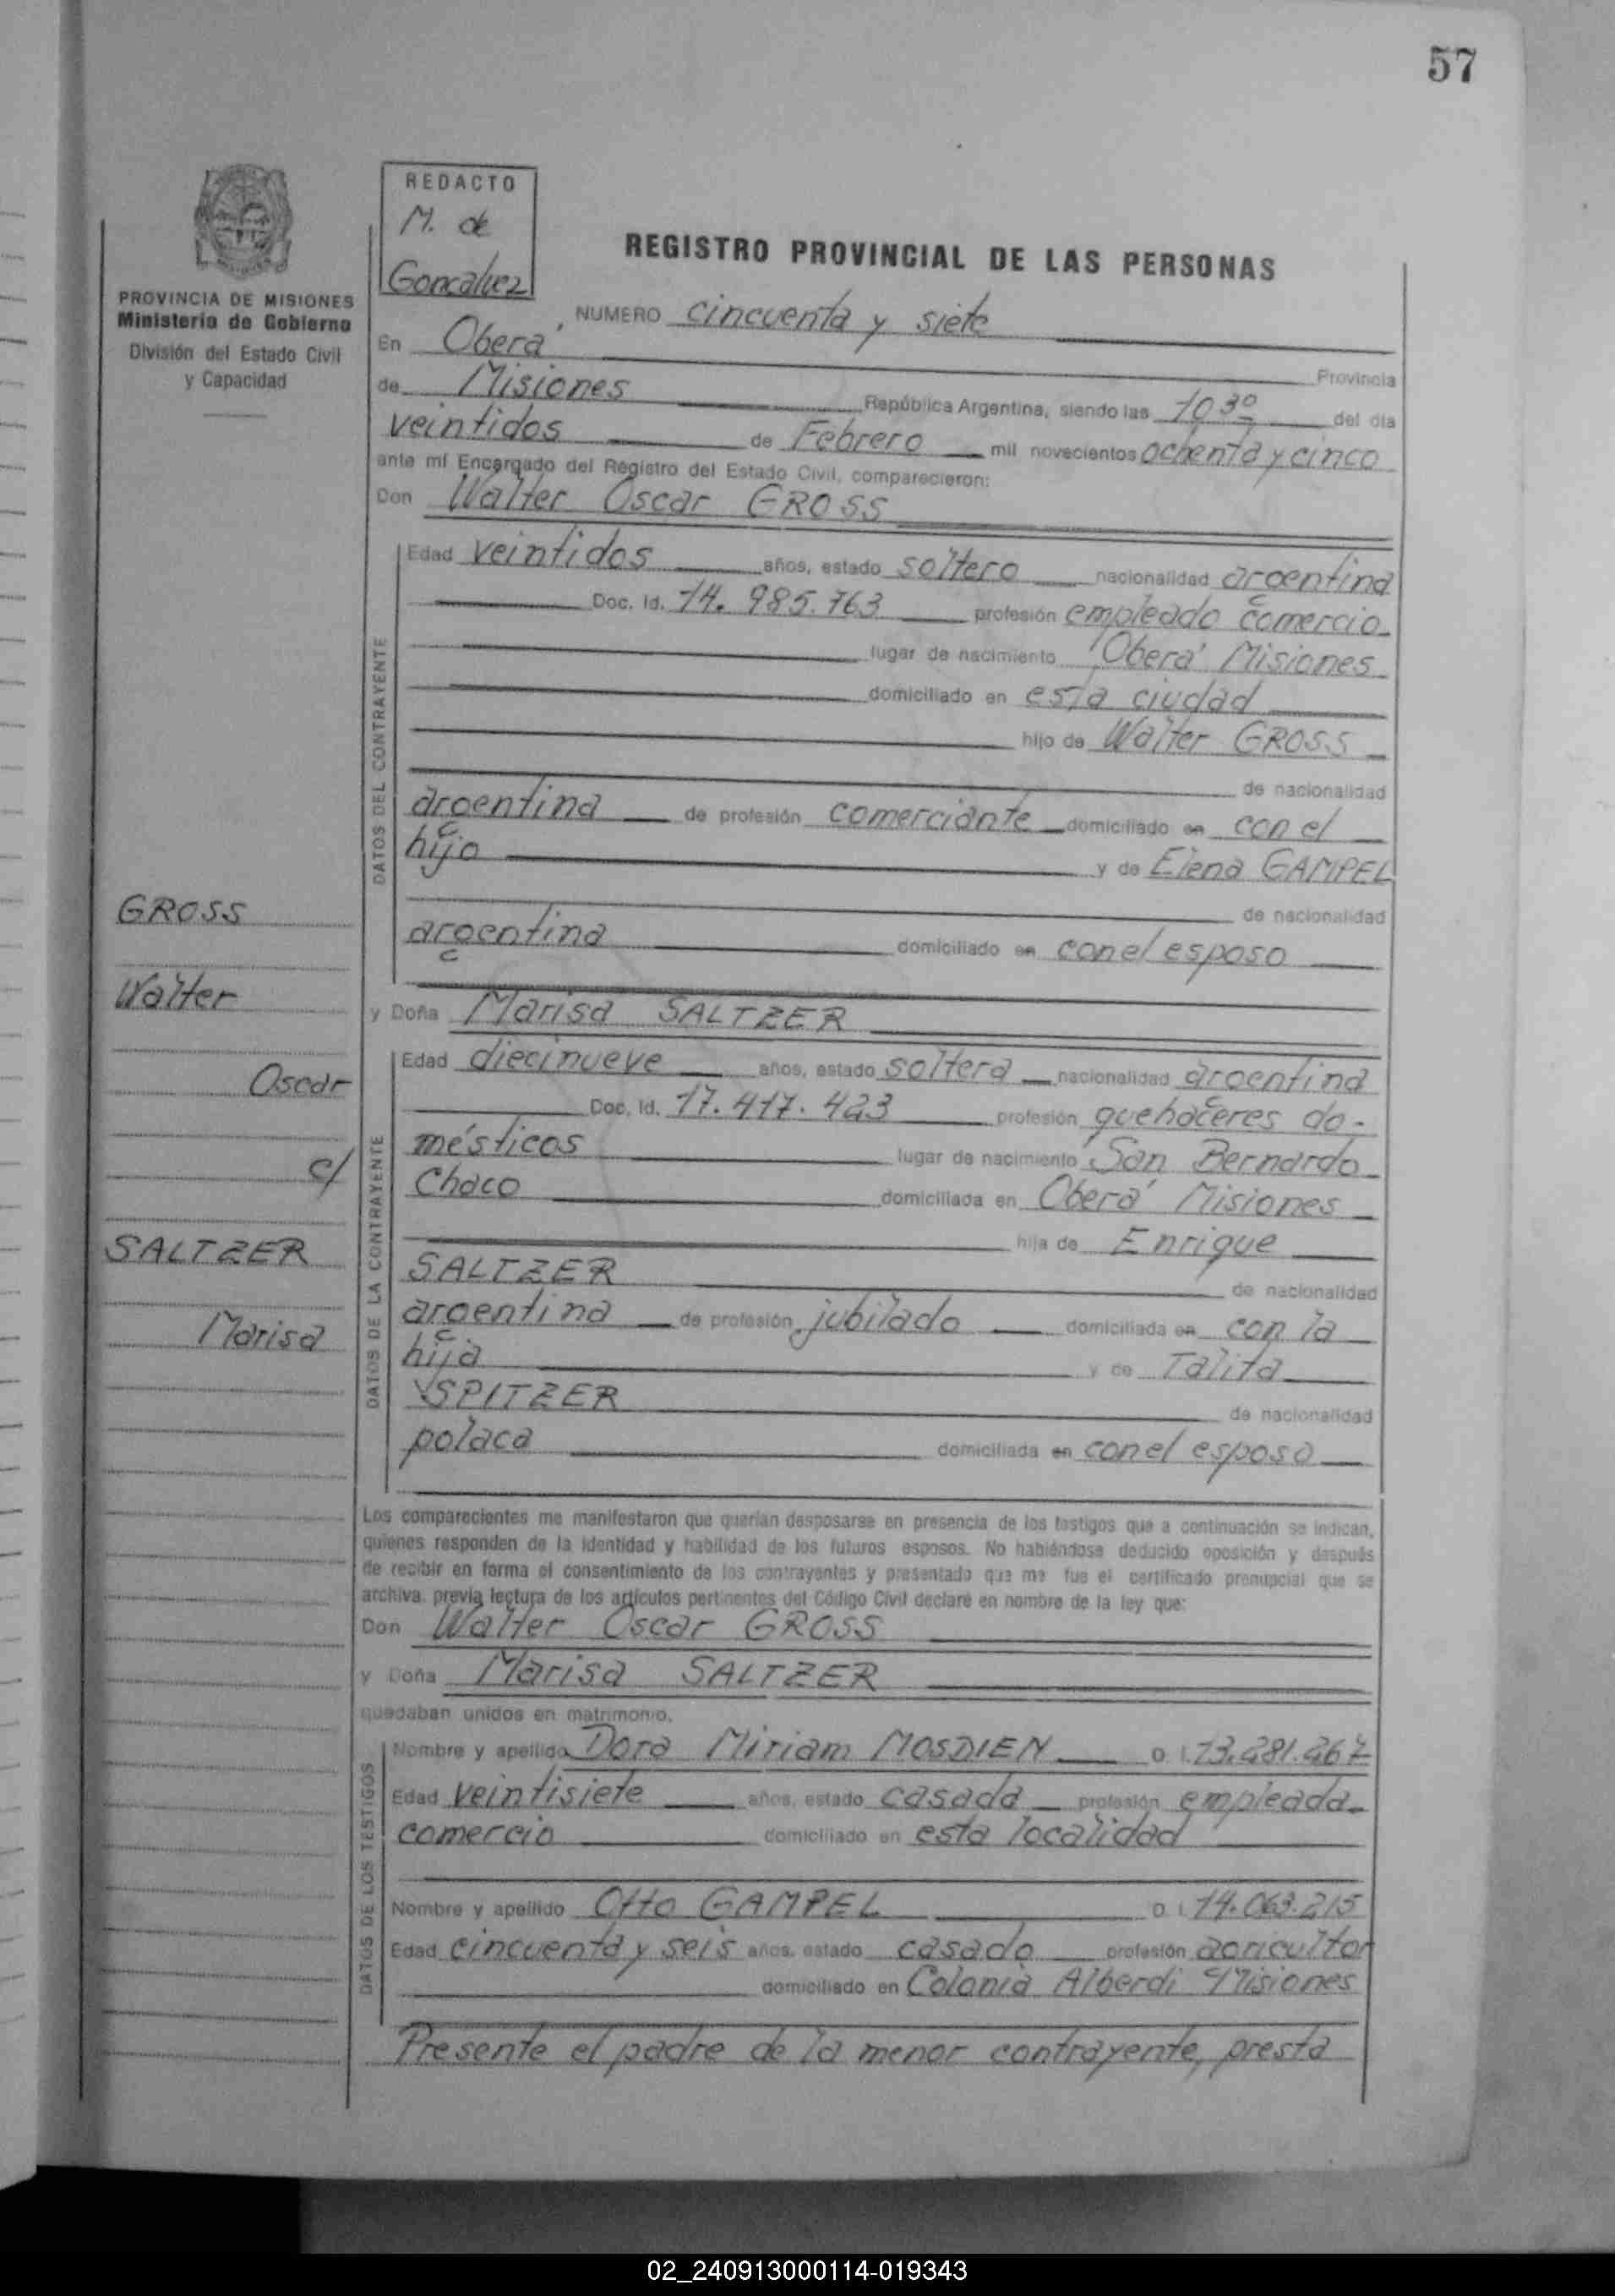 57
REDACTO
M. de
Goncalvez
REGISTRO PROVINCIAL DE LAS PERSONAS
PROVINCIA DE MISIONES
Ministerio de Gobierno
División del Estado Civil
y Capacidad
NUMERO cincuenta y siete
En Oberá, Provincia
de Misiones República Argentina, siendo las 10 30 del día
veintidos de Febrero mil novecientos ochenta y cinco
ante mí Encargado del Registro del Estado Civil, comparecieron:
Don Walter Oscar GROSS
DATOS DEL CONTRAYENTE
Edad veintidos años, estado soltero nacionalidad argentina
Doc. Id. 14.985.763 profesión empleado comercio
lugar de nacimiento Oberá Misiones
domiciliado en esta ciudad
hijo de Walter GROSS
de nacionalidad
argentina de profesión comerciante domiciliado en con el
hijo y de Elena GAMPEL
de nacionalidad
argentina domiciliado en con el esposo
y Doña Marisa SALTZER
DATOS DE LA CONTRAYENTE
Edad diecinueve años, estado soltera nacionalidad argentina
Doc. Id. 17.417.423 profesión quehaceres do-
mésticos lugar de nacimiento San Bernardo
Chaco domiciliada en Oberá Misiones
hija de Enrique
SALTZER de nacionalidad
argentina de profesión jubilado domiciliada en con la
hija y de Talita
SPITZER de nacionalidad
polaca domiciliada en con el esposo
GROSS
Walter
Oscar
c/
SALTZER
Marisa
Los comparecientes me manifestaron que querían desposarse en presencia de los testigos que a continuación se indican,
quienes responden de la identidad y habilidad de los futuros esposos. No habiéndose deducido oposición y después
de recibir en forma el consentimiento de los contrayentes y presentado que me fue el certificado prenupcial que se
archiva, previa lectura de los artículos pertinentes del Código Civil declaré en nombre de la ley que:
Don Walter Oscar GROSS
y Doña Marisa SALTZER
quedaban unidos en matrimonio.
DATOS DE LOS TESTIGOS
Nombre y apellido Dora Miriam MOSDIEN D. I. 13.281.267
Edad veintisiete años, estado casada profesión empleada
comercio domiciliado en esta localidad
Nombre y apellido Otto GAMPEL D. I. 14.063.215
Edad cincuenta y seis años, estado casado profesión agricultor
domiciliado en Colonia Alberdi Misiones
Presente el padre de la menor contrayente, presta
02_240913000114-019343